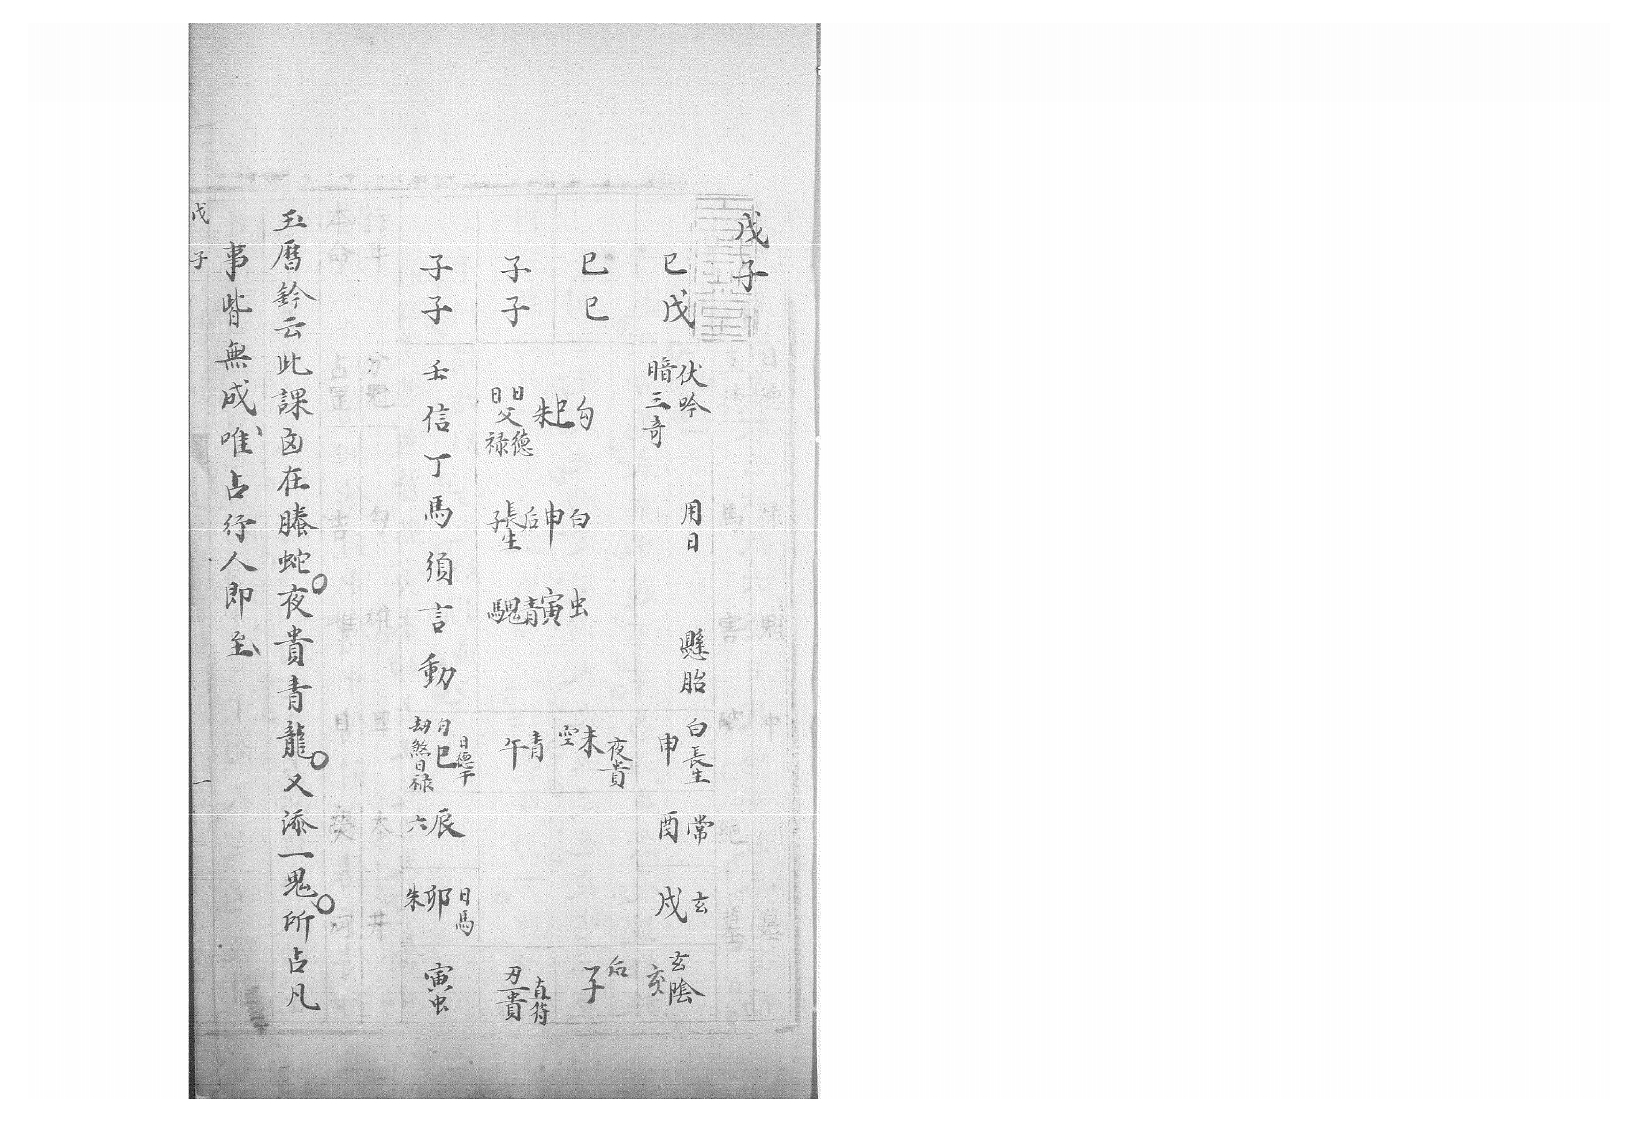 戊子
巳戊 伏吟 暗三奇 用日 懸胎 白長生 申 常 酉 玄 戌 玄陰 亥
巳巳 勾巳朱 日日父德禄 白申后長生子 虫寅青鬼 夜貴 未空 后 子
子子 青 午 直符 丑貴
子子 壬信丁馬須言動 日德 巳 勾 劫煞日禄 辰六 日馬 卯朱 寅虫
玉曆鈐云此課囟在螣蛇夜貴青龍又添一鬼所占凡
事皆無成唯占行人即至
戊子 一